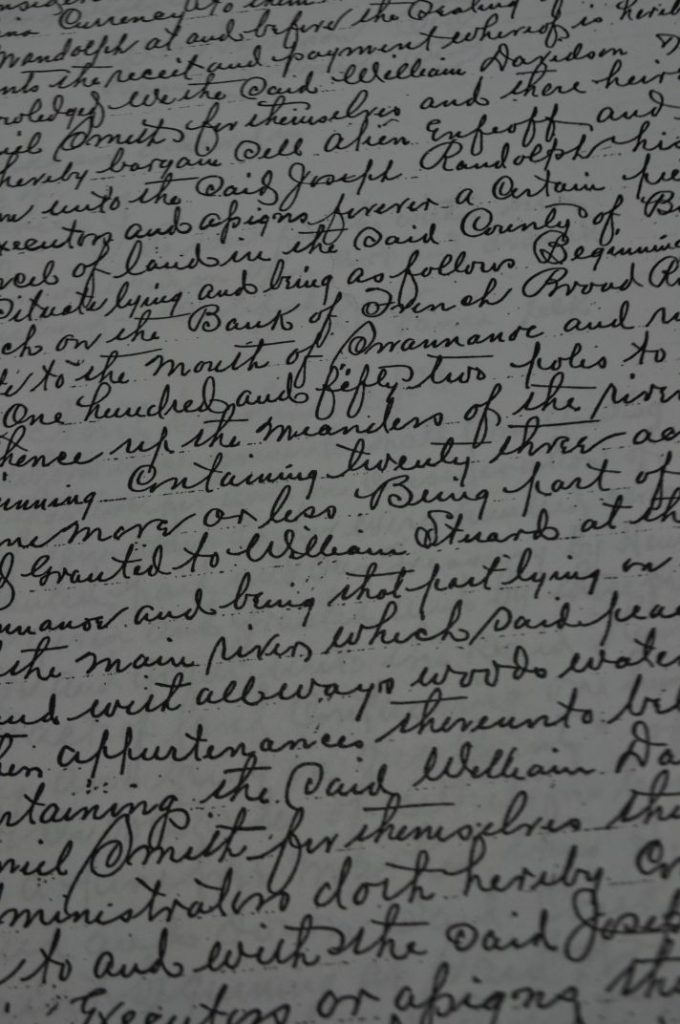 Currency to them
Randolph at and before the Sealing
nts the receit and payment whereof is hereb
owledged We the said William Davidson
iel Smith for themselves and there heirs
hereby bargain Sell alien Enfeoff and
unto the said Joseph Randolph his
xecutors and assigns forever a Certain pie
rcel of land in the said County of B
Situate lying and being as follows Beginning
ch on the Bank of French Broad R
to the mouth of Swannanoe and r
One hundred and fifty two poles to
hence up the meanders of the river
inning Containing twenty three ac
me more or less Being part of
Granted to William Stuard at th
nnanoe and being that part lying on
the main river which said peac
and with all ways woods water
appurtenances thereunto bel
rtaining the said William Da
niel Smith for themselves the
ministrators doth hereby Co
to and with the said Josep
Executors or assigns the